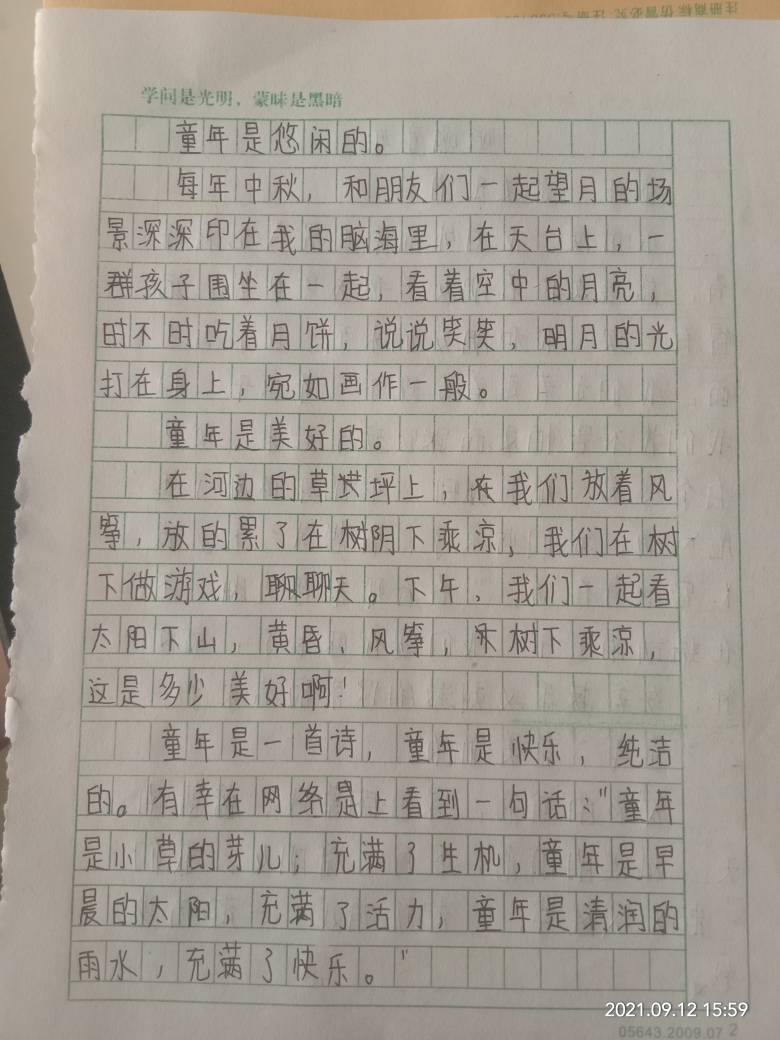 学问是光明，蒙昧是黑暗
童年是悠闲的。
每年中秋，和朋友们一起望月的场
景深深印在我的脑海里，在天台上，一
群孩子围坐在一起，看着空中的月亮，
时不时吃着月饼，说说笑笑，明月的光
打在身上，宛如画作一般。
童年是美好的。
在河边的草坪上，我们放着风
筝，放的累了在树阴下乘凉，我们在树
下做游戏，聊聊天。下午，我们一起看
太阳下山，黄昏、风筝，树下乘凉，
这是多少美好啊！
童年是一首诗，童年是快乐，纯洁
的。有幸在网络上看到一句话："童年
是小草的芽儿；充满了生机，童年是早
晨的太阳，充满了活力，童年是清润的
雨水，充满了快乐。"
2021.09.12 15:59
05643.2009.07 2